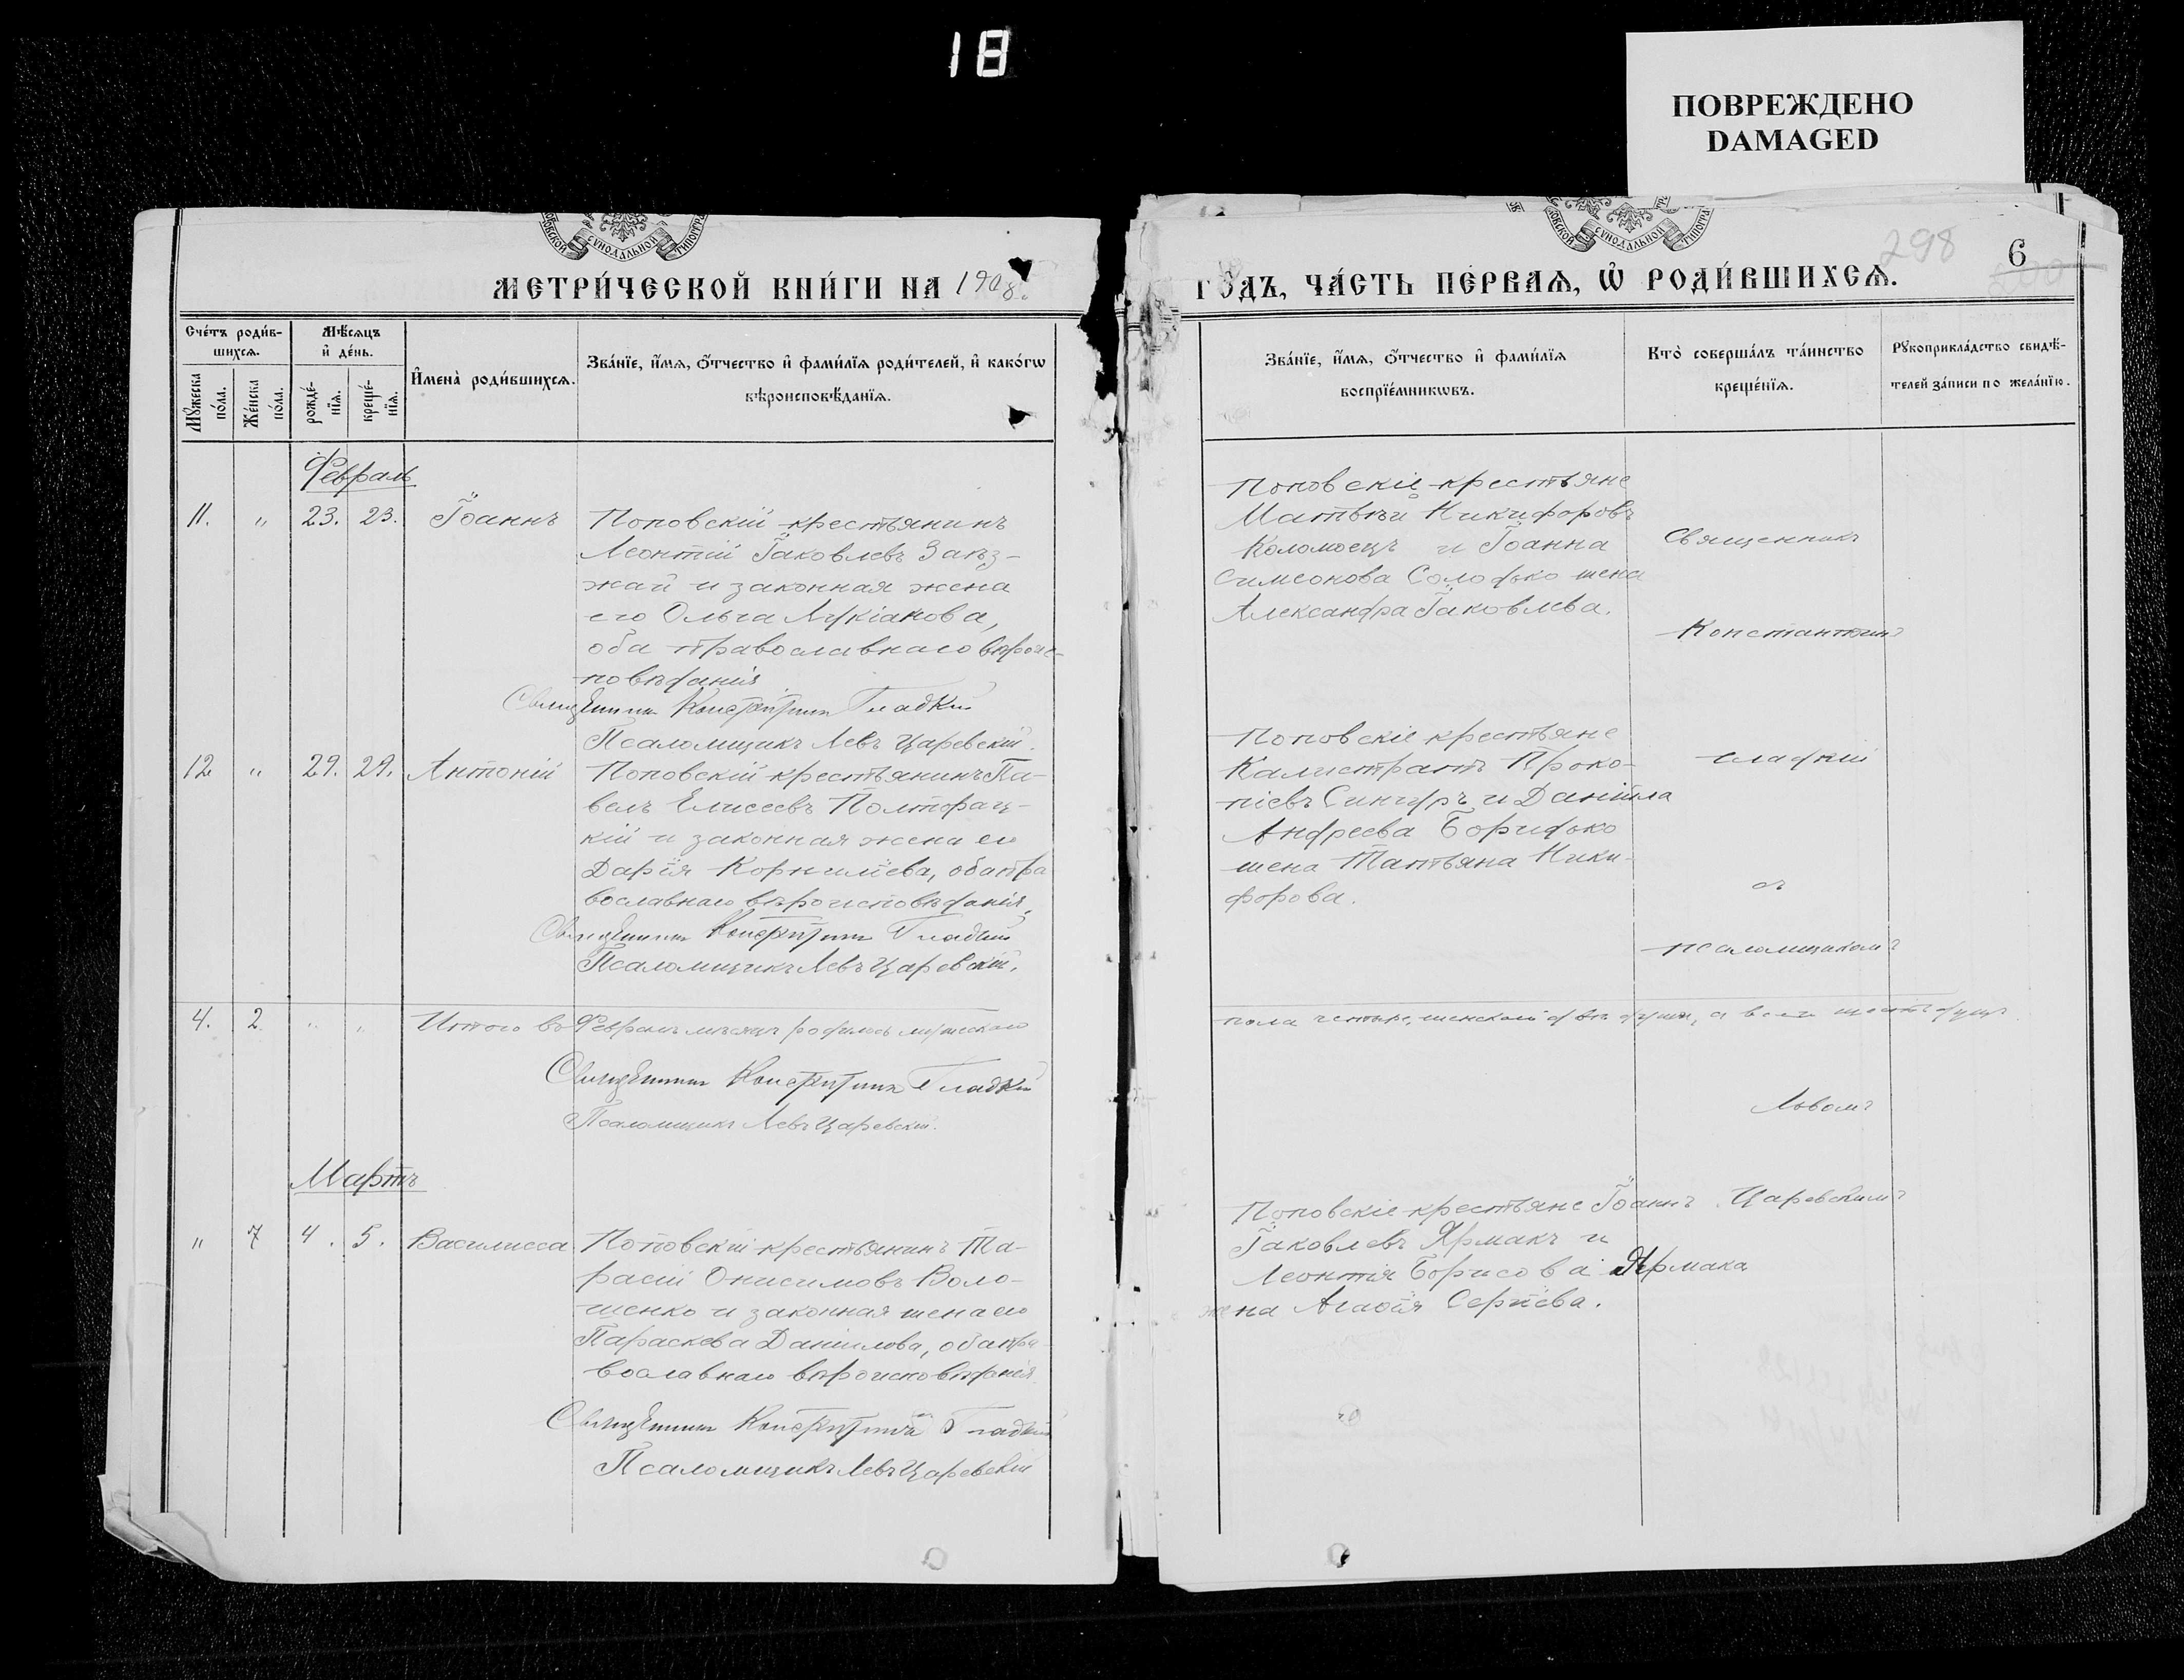 18
ПОВРЕЖДЕНО
DAMAGED
СѴНОДАЛЬНОЙ
СѴНОДАЛЬНОЙ
298
6
МЕТРИ́ЧЕСКОЙ КНИ́ГИ НА 1908.
ГО́ДЪ, ЧА́СТЬ ПЕ́РВАѦ, Ѡ҆ РОДИ́ВШИХСѦ.
Сче́тъ роди́в-
шихсѧ.
Мѹ́жеска по́ла.
Же́нска по́ла.
Мѣ́сѧцъ
и҆ де́нь.
рожде́-
нїѧ.
креще́-
нїѧ.
И҆мена̀ роди́вшихсѧ.
Зва́нїе, и҆́мѧ, ѻ҆́тчество и҆ фами́лїѧ роди́телей, и҆ како́гѡ
вѣроисповѣ́данїѧ.
Зва́нїе, и҆́мѧ, ѻ҆́тчество и҆ фами́лїѧ
воспрїе́мникѡвъ.
Кто̀ соверша́лъ та́инство
креще́нїѧ.
Рѹкоприкла́дство свидѣ́-
телей за́писи по жела́нїю.
Февраль
11. " 23. 23. Іоаннъ
Поповскій крестьянинъ
Леонтій Іаковлевъ Заѣз-
жай и законная жена
его Ольга Лукіанова,
оба православнаго вѣроис-
повѣданія.
Священникъ Константинъ Гладкій
Псаломщикъ Левъ Царевскій.
Поповскіе крестьяне
Матвѣй Никифоровъ
Коломоецъ и Іоанна
Симеонова Солодько жена
Александра Іаковлева.
Священникъ
Константинъ
12 " 29. 29. Антоній
Поповскій крестьянинъ Па-
велъ Елисеевъ Полторац-
кій и законная жена его
Дарія Корниліева, оба пра
вославнаго вѣроисповѣданія.
Священникъ Константинъ Гладкій
Псаломщикъ Левъ Царевскій.
Поповскіе крестьяне
Калистратъ Проко-
піевъ Сингуръ и Даніила
Андреева Боридько
жена Татьяна Ники-
форова.
Гладкій
съ
псаломщикомъ
4. 2 " " Итого въ Февралѣ мѣсяцѣ родилось мужескаго
пола четыре, женскаго двѣ души, а всего шесть душъ
Священникъ Константинъ Гладкій
Псаломщикъ Левъ Царевскій.
Львомъ
Мартъ
" 7 4. 5. Василисса
Поповскій крестьянинъ Та-
расій Онисимовъ Воло-
шенко и законная жена его
Параскева Даніилова, оба пра
вославнаго вѣроисповѣданія.
Священникъ Константинъ Гладкій
Псаломщикъ Левъ Царевскій
Поповскіе крестьяне Іоаннъ
Іаковлевъ Ярмакъ и
Леонтія Борисова Ярмака
жена Агаѳія Сергіева.
Царевскимъ